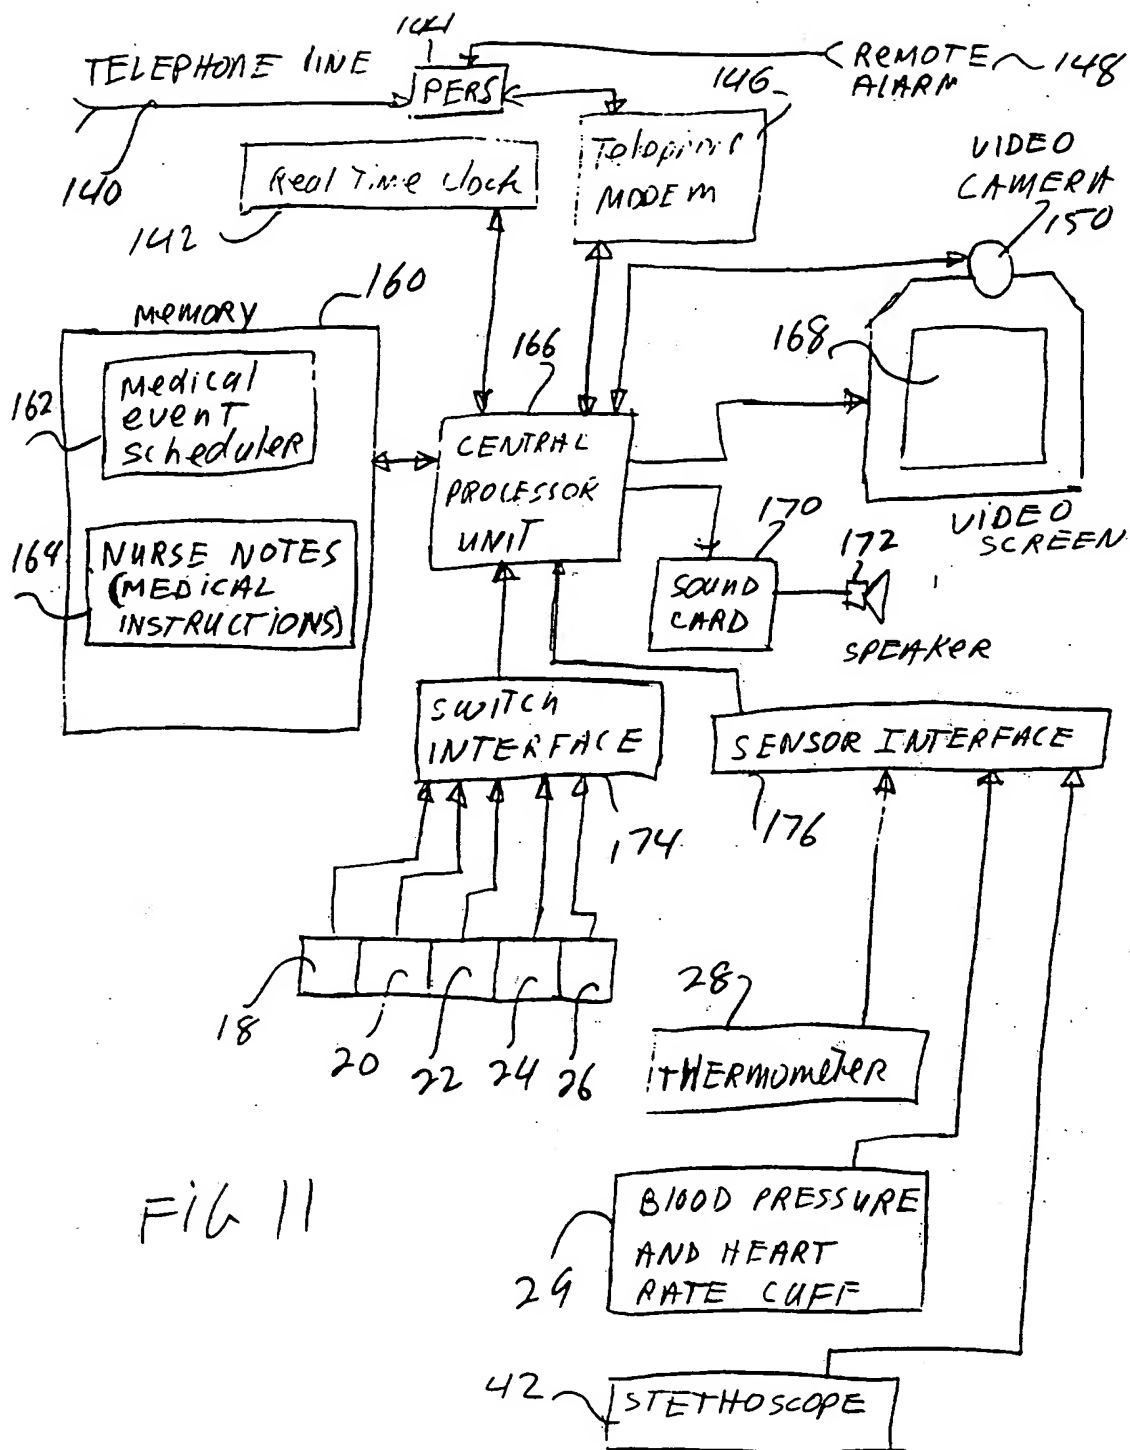 144
TELEPHONE LINE
PERS
REMOTE
ALARM
148
146
140
Real Time Clock
142
MODEM
VIDEO
CAMERA
150
MEMORY
160
162
Medical
event
scheduler
164
NURSE NOTES
(MEDICAL
INSTRUCTIONS)
166
CENTRAL
PROCESSOR
UNIT
168
VIDEO
SCREEN
170
SOUND
CARD
172
SPEAKER
SWITCH
INTERFACE
174
SENSOR INTERFACE
176
18
20
22
24
26
28
THERMOMETER
29
BLOOD PRESSURE
AND HEART
RATE CUFF
42
STETHOSCOPE
FIG 11